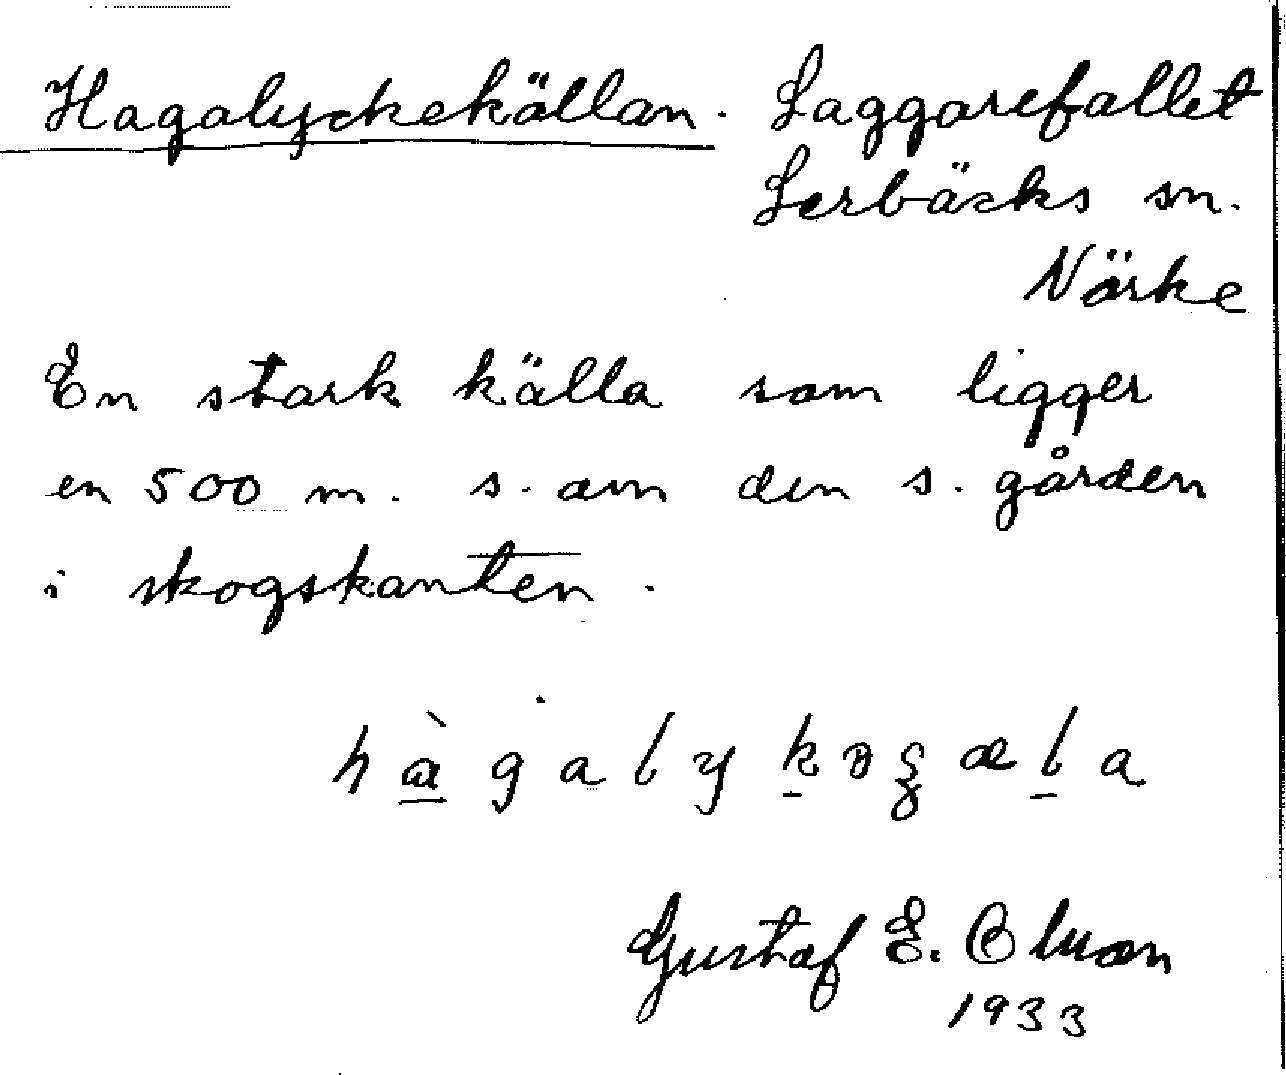 Hagalyckekällan. Laggarefallet
Lerbäcks sn.
Närke
En stark källa som ligger
en 500 m. s. om den s. gården
i skogskanten.
Gustaf E.
1933